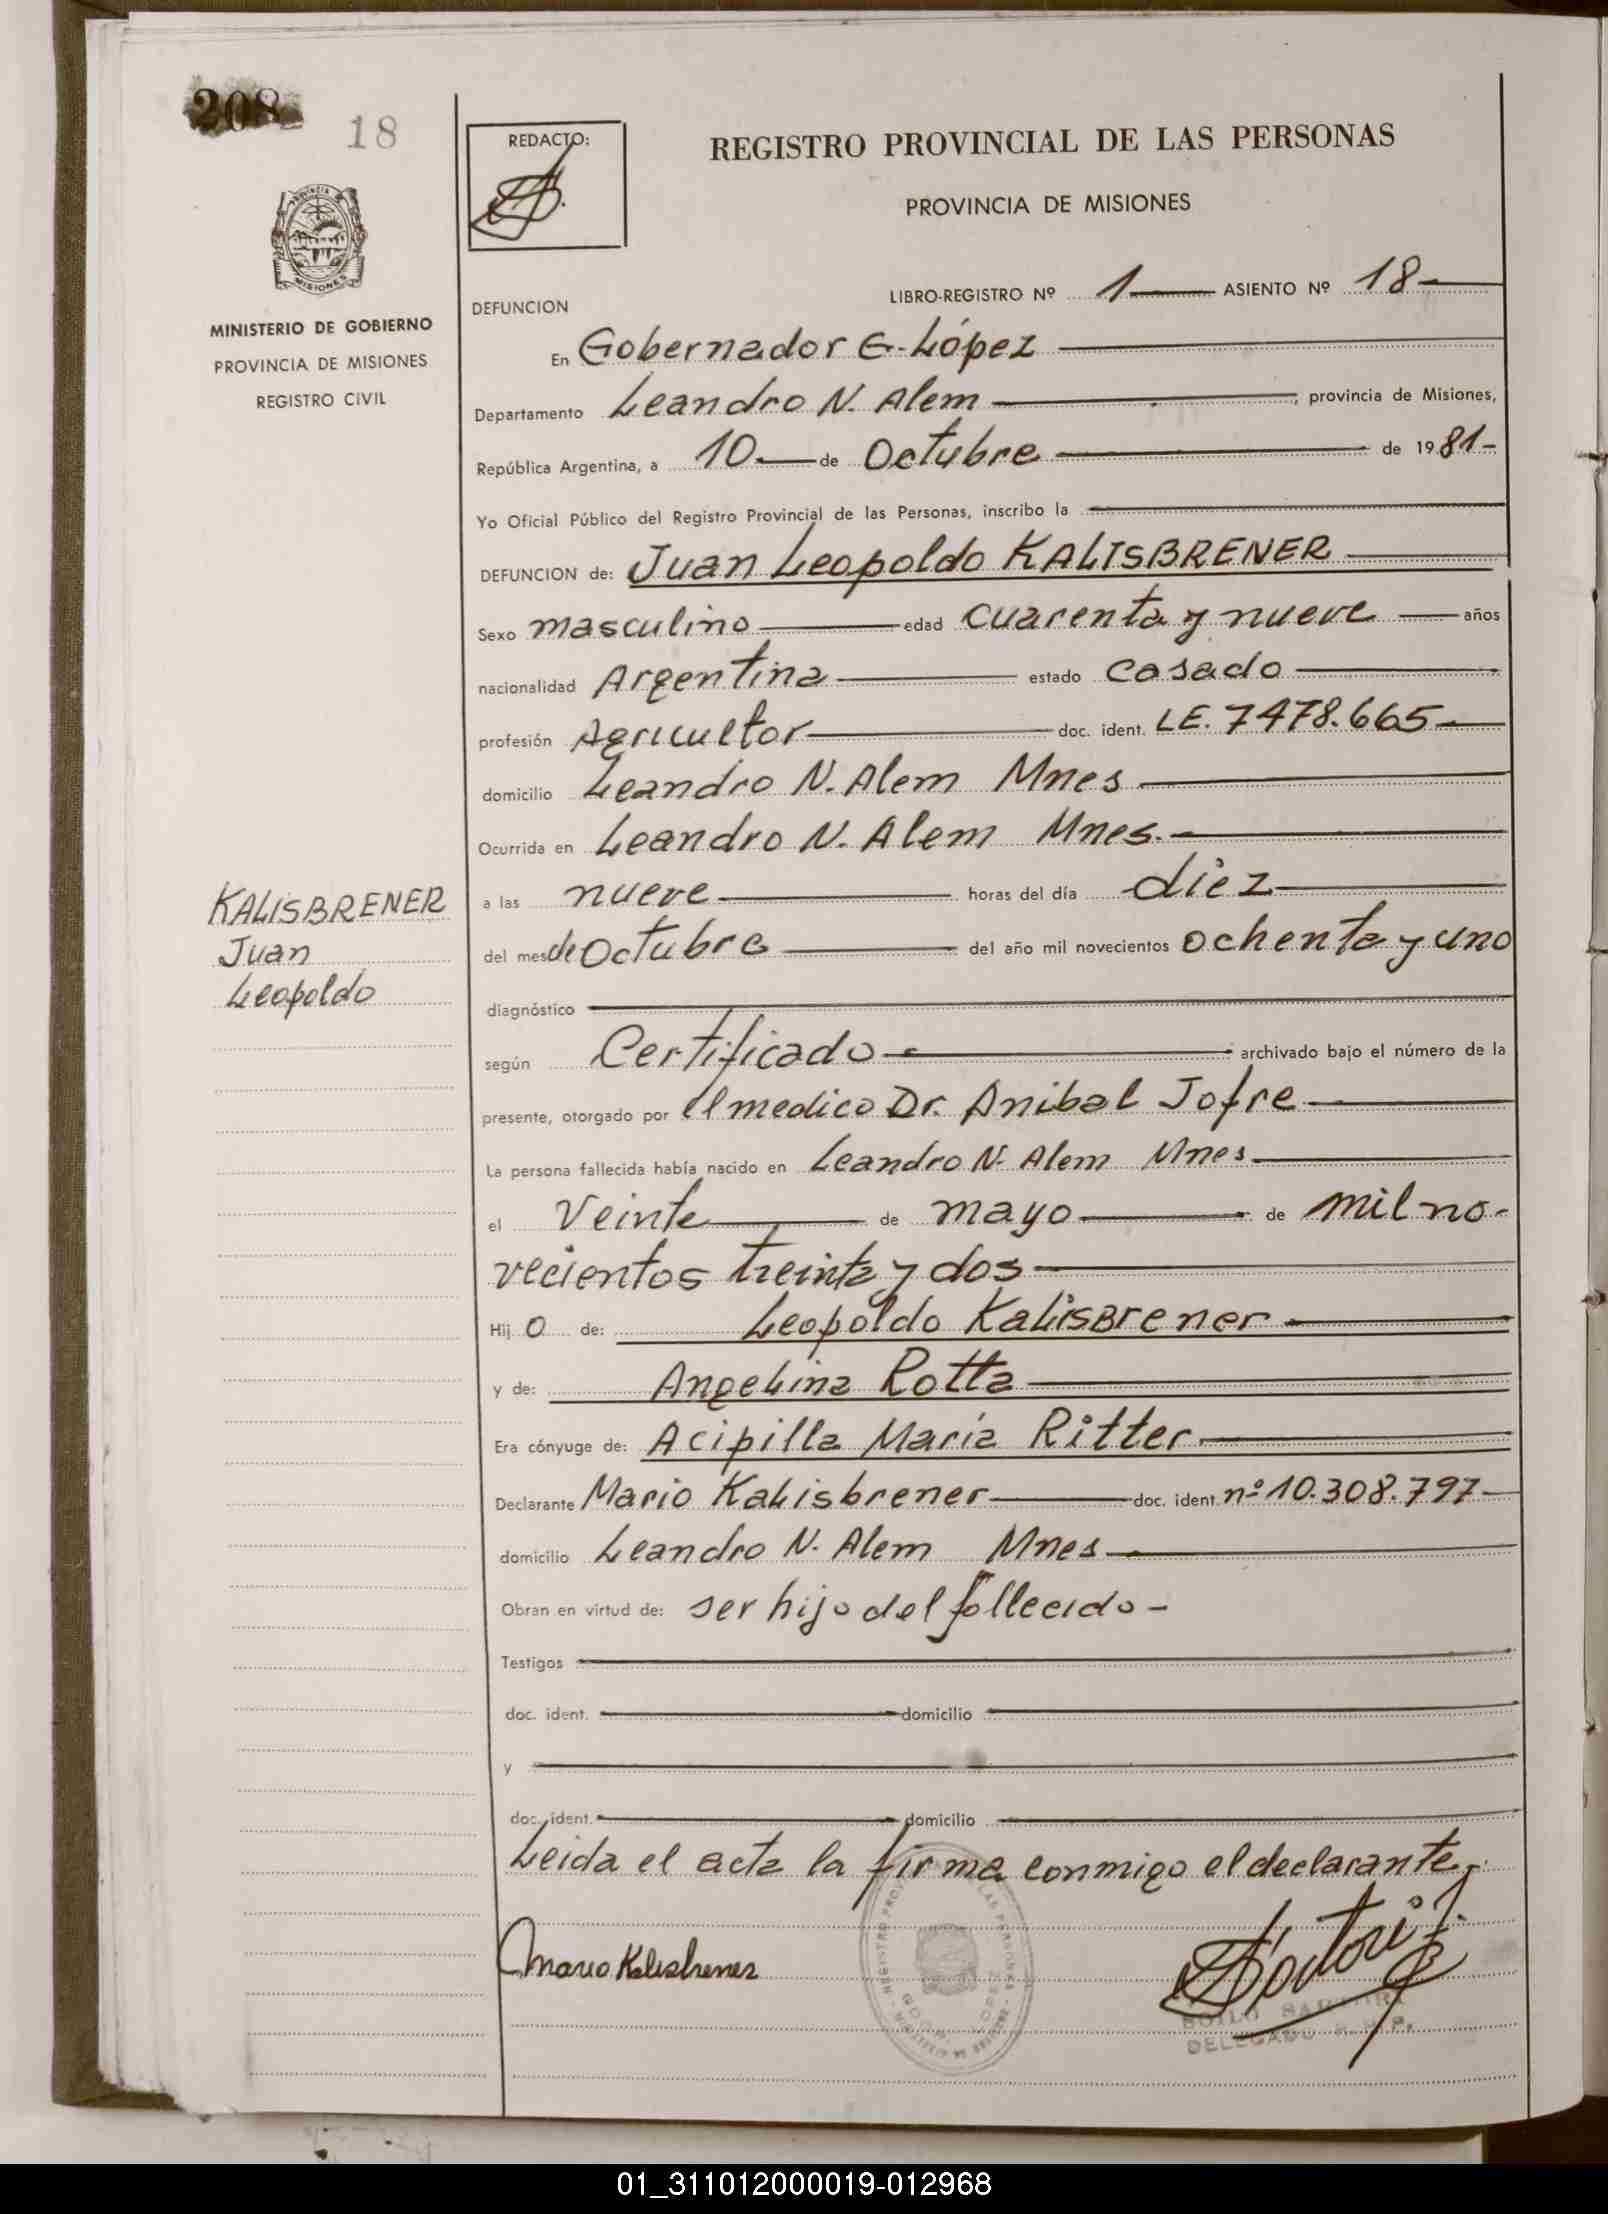 208
18
REDACTO:
REGISTRO PROVINCIAL DE LAS PERSONAS
PROVINCIA DE MISIONES
PROVINCIA
MISIONES
MINISTERIO DE GOBIERNO
PROVINCIA DE MISIONES
REGISTRO CIVIL
DEFUNCION
LIBRO-REGISTRO Nº 1 ASIENTO Nº 18
En Gobernador G. López
Departamento Leandro N. Alem, provincia de Misiones,
República Argentina, a 10 de Octubre de 1981
Yo Oficial Público del Registro Provincial de las Personas, inscribo la
DEFUNCION de: Juan Leopoldo KALISBRENER
Sexo masculino edad cuarenta y nueve años
nacionalidad Argentina estado casado
profesión Agricultor doc. ident. LE. 7478.665
domicilio Leandro N. Alem Mnes
Ocurrida en Leandro N. Alem Mnes.
a las nueve horas del día diez
del mes de Octubre del año mil novecientos ochenta y uno
diagnóstico
según Certificado archivado bajo el número de la
presente, otorgado por el medico Dr. Anibal Jofre
La persona fallecida había nacido en Leandro N. Alem Mnes
el Veinte de mayo de mil no-
vecientos treinta y dos
Hij o de: Leopoldo Kalisbrener
y de: Angelina Rotta
Era cónyuge de: Acipilla María Ritter
Declarante Mario Kalisbrener doc. ident. nº 10.308.797
domicilio Leandro N. Alem Mnes
Obran en virtud de: ser hijo del fallecido -
Testigos
doc. ident. domicilio
y
doc. ident. domicilio
Leida el acta la firma conmigo el declarante.
KALISBRENER
Juan
Leopoldo
Mario Kalisbrener
SARTORI
DELEGADO R. P. P.
01_311012000019-012968